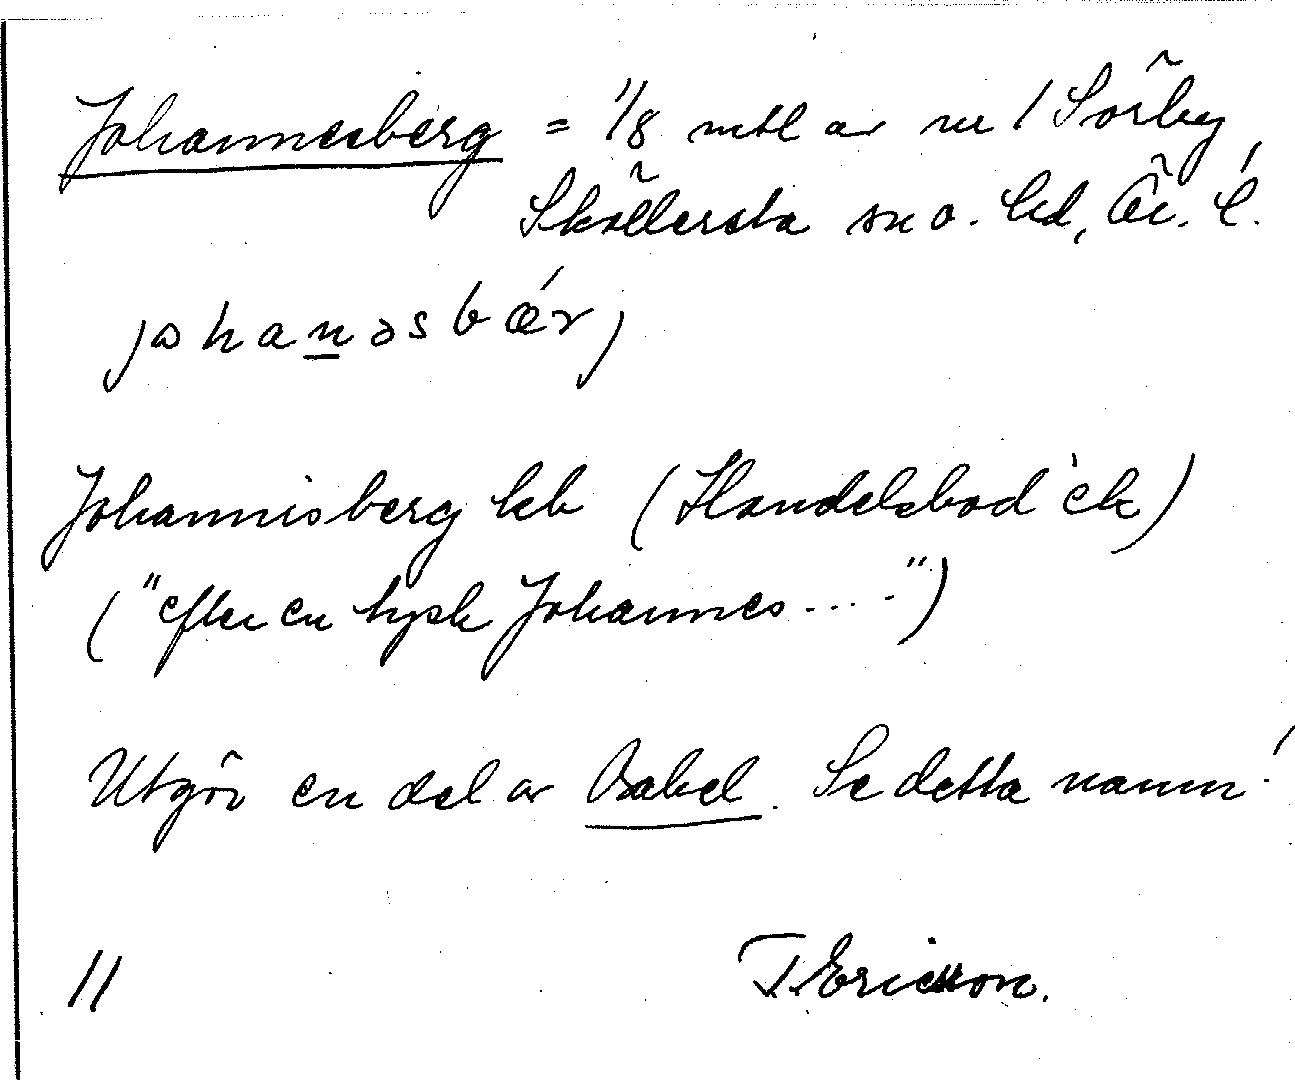 Johannesberg = 1/8 mtl av nr 1 Sörby,
Sköllersta sn o. hd, Ör. l.
johanəsbǽrj
Johannisberg kb (Handelsbod ek)
("efter en tysk Johannes....")
Utgör en del av Babel. Se detta namn!
11 T. Ericsson.